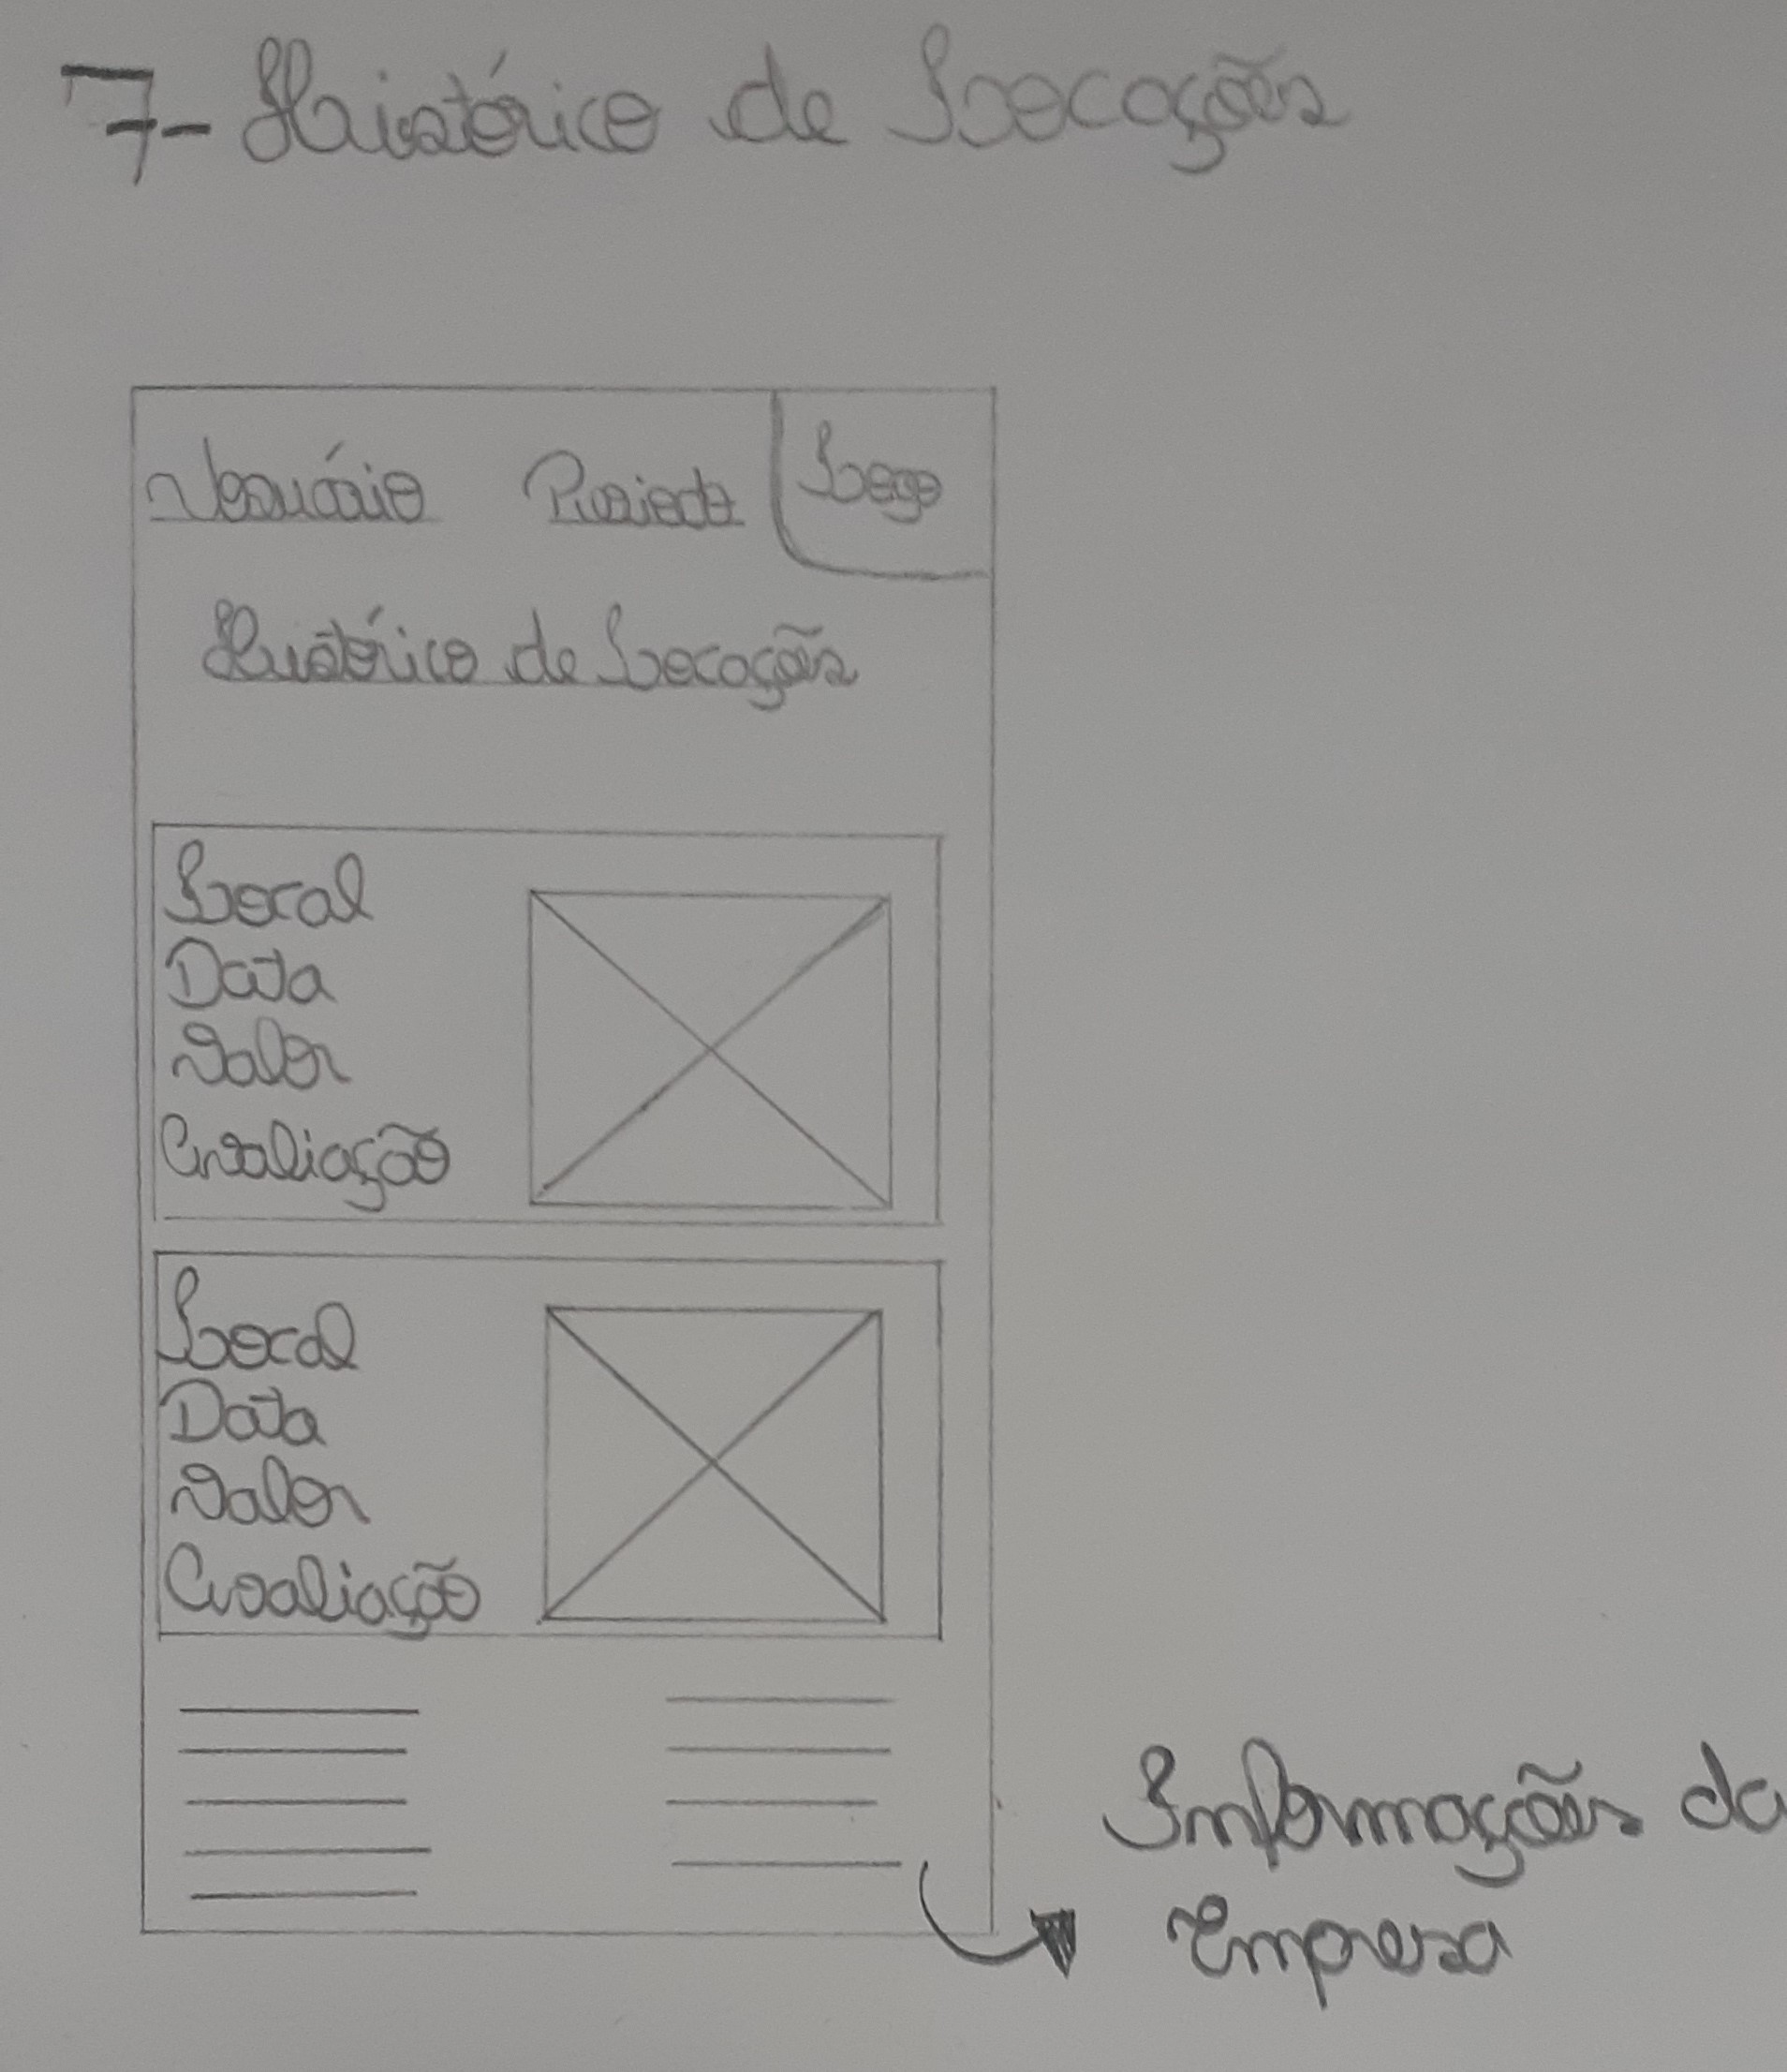 7- Histórico de Locações
Usuário Projeto Logo
Histórico de Locações
Local
Data
Valor
Avaliação
Local
Data
Valor
Avaliação
Informações da
Empresa